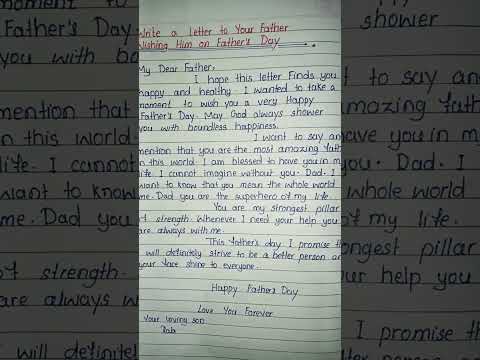 Write a Letter to Your Father
Wishing Him on Father's Day
My Dear Father,
I hope this letter Finds you
happy and healthy. I wanted to take a
moment to wish you a very Happy
Father's Day. May God always shower
you with boundless happiness.
I want to say an
mention that you are the most amazing fath
in this world. I am blessed to have you in m
life. I cannot imagine without you. Dad. I
want to know that you mean the whole world
me. Dad you are the superhero of my life.
You are my strongest pillar
of strength. Whenever I need your help you
are always with me.
This father's day I promise th
I will definitely strive to be a better person an
your face shine to everyone.
Happy Father's Day
Love You Forever
Your loving son